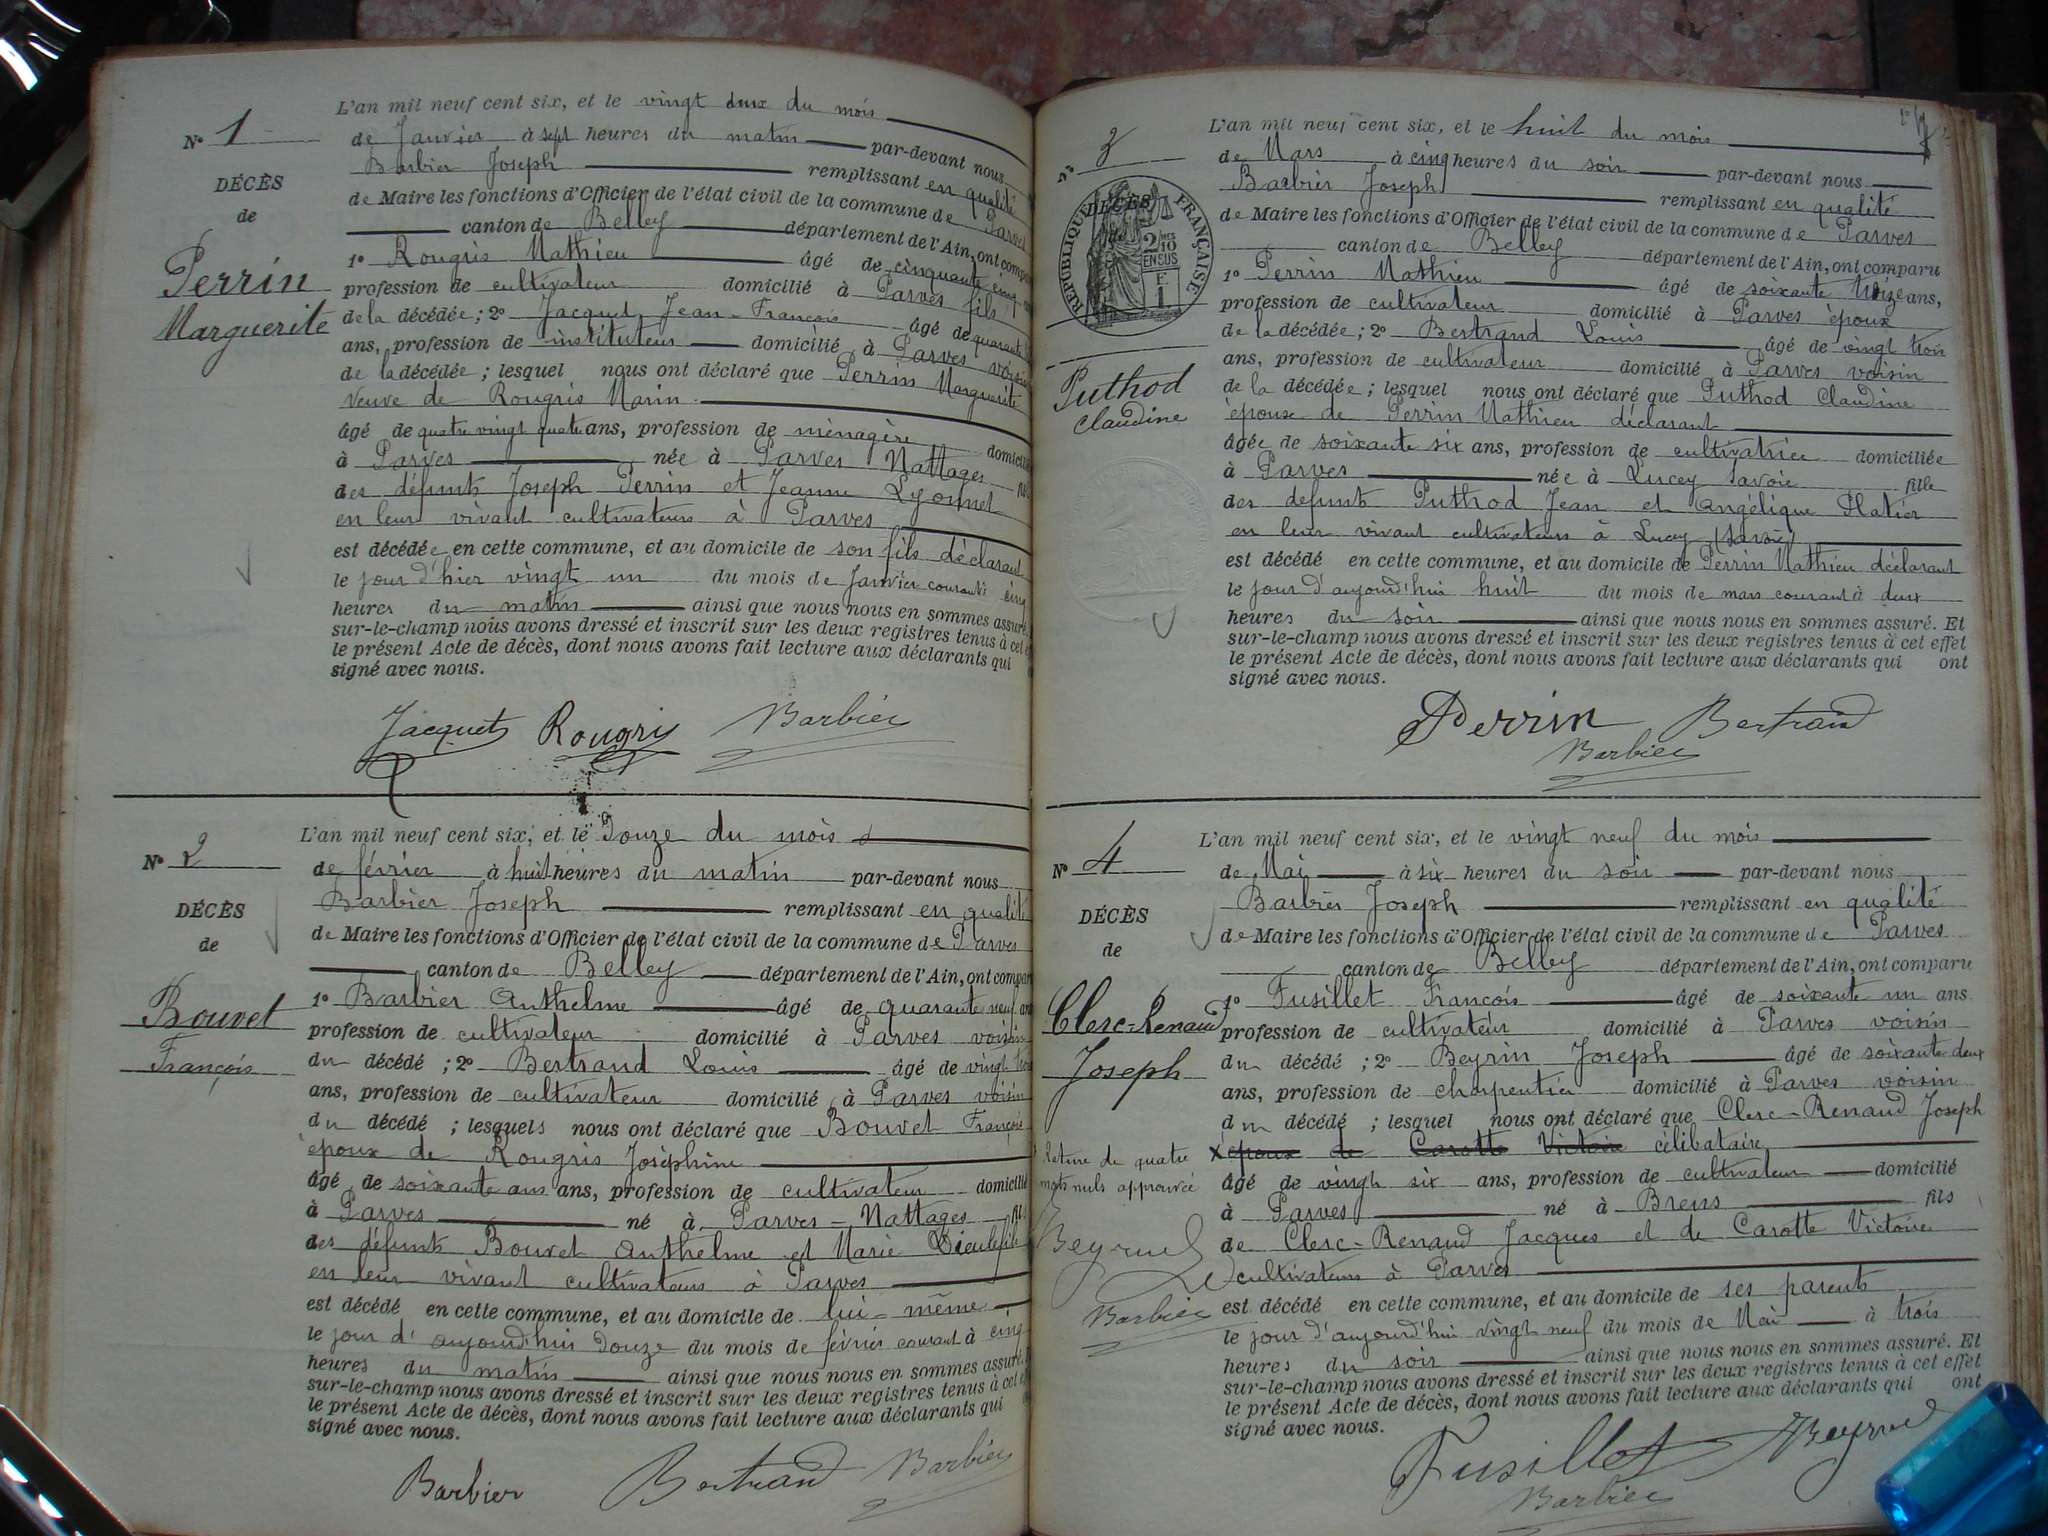 N° 1
DÉCÈS
de
Perrin
Marguerite
L'an mil neuf cent six, et le vingt deux du mois
de Janvier à sept heures du matin par-devant nous
Barbier Joseph remplissant en qualité
de Maire les fonctions d'Officier de l'état civil de la commune de Parves
canton de Belley département de l'Ain, ont comparu
1° Rougris Mathieu âgé de cinquante cinq
profession de cultivateur domicilié à Parves fils
de la décédée ; 2° Jacquet Jean-François âgé de quarante
ans, profession de instituteur domicilié à Parves voisin
de la décédée ; lesquel nous ont déclaré que Perrin Marguerite
veuve de Rougris Marin
âgé de quatre vingt quatre ans, profession de ménagère domicilié
à Parves née à Parves Nattages
des défunts Joseph Perrin et Jeanne Lyonnet
en leur vivant cultivateurs à Parves
est décédée en cette commune, et au domicile de son fils déclarant
le jour d'hier vingt un du mois de Janvier courant à cinq
heures du matin ainsi que nous nous en sommes assuré.
sur-le-champ nous avons dressé et inscrit sur les deux registres tenus à cet
le présent Acte de décès, dont nous avons fait lecture aux déclarants qui
signé avec nous.
Jacquet Rougris Barbier
N° 2
DÉCÈS
de
Bouvet
François
L'an mil neuf cent six, et le Douze du mois
de février à huit heures du matin par-devant nous
Barbier Joseph remplissant en qualité
de Maire les fonctions d'Officier de l'état civil de la commune de Parves
canton de Belley département de l'Ain, ont comparu
1° Barbier Anthelme âgé de quarante neuf ans
profession de cultivateur domicilié à Parves voisin
du décédé ; 2° Bertrand Louis âgé de vingt trois
ans, profession de cultivateur domicilié à Parves voisin
du décédé ; lesquels nous ont déclaré que Bouvet François
époux de Rougris Joséphine
âgé de soixante ans ans, profession de cultivateur domicilié
à Parves né à Parves-Nattages fils
des défunts Bouvet Anthelme et Marie
en leur vivant cultivateurs à Parves
est décédé en cette commune, et au domicile de lui-même
le jour d'aujourd'hui Douze du mois de février courant à cinq
heures du matin ainsi que nous nous en sommes assuré.
sur-le-champ nous avons dressé et inscrit sur les deux registres tenus à cet
le présent Acte de décès, dont nous avons fait lecture aux déclarants qui
signé avec nous.
Barbier Bertrand Barbier
N° 3
DÉCÈS
RÉPUBLIQUE FRANÇAISE
2/10
EN SUS
F.
1
Puthod
Claudine
L'an mil neuf cent six, et le huit du mois
de Mars à cinq heures du soir par-devant nous
Barbier Joseph remplissant en qualité
de Maire les fonctions d'Officier de l'état civil de la commune de Parves
canton de Belley département de l'Ain, ont comparu
1° Perrin Mathieu âgé de soixante treize ans,
profession de cultivateur domicilié à Parves époux
de la décédée ; 2° Bertrand Louis âgé de vingt trois
ans, profession de cultivateur domicilié à Parves voisin
de la décédée ; lesquel nous ont déclaré que Puthod Claudine
épouse de Perrin Mathieu déclarant
âgée de soixante six ans, profession de cultivatrice domiciliée
à Parves née à Lucey Savoie fille
des défunts Puthod Jean et Angélique Platier
en leur vivant cultivateurs à Lucey (Savoie)
est décédé en cette commune, et au domicile de Perrin Mathieu déclarant
le jour d'aujourd'hui huit du mois de mars courant à deux
heures du soir ainsi que nous nous en sommes assuré. Et
sur-le-champ nous avons dressé et inscrit sur les deux registres tenus à cet effet
le présent Acte de décès, dont nous avons fait lecture aux déclarants qui ont
signé avec nous.
Perrin Bertrand
Barbier
N° 4
DÉCÈS
de
Clerc-Renaud
Joseph
L'an mil neuf cent six, et le vingt neuf du mois
de Mai à six heures du soir par-devant nous
Barbier Joseph remplissant en qualité
de Maire les fonctions d'Officier de l'état civil de la commune de Parves
canton de Belley département de l'Ain, ont comparu
1° Fusillet François âgé de soixante un ans
profession de cultivateur domicilié à Parves voisin
du décédé ; 2° Beyrin Joseph âgé de soixante deux
ans, profession de charpentier domicilié à Parves voisin
du décédé ; lesquel nous ont déclaré que Clerc-Renaud Joseph
x époux de Carotte Victoire célibataire
âgé de vingt six ans, profession de cultivateur domicilié
à Parves né à Brens fils
de Clerc-Renaud Jacques et de Carotte Victoire
cultivateurs à Parves
est décédé en cette commune, et au domicile de ses parents
le jour d'aujourd'hui vingt neuf du mois de Mai à trois
heures du soir ainsi que nous nous en sommes assuré. Et
sur-le-champ nous avons dressé et inscrit sur les deux registres tenus à cet effet
le présent Acte de décès, dont nous avons fait lecture aux déclarants qui ont
signé avec nous.
de quatre
mots nuls approuvée
Barbier
Fusillet
Barbier